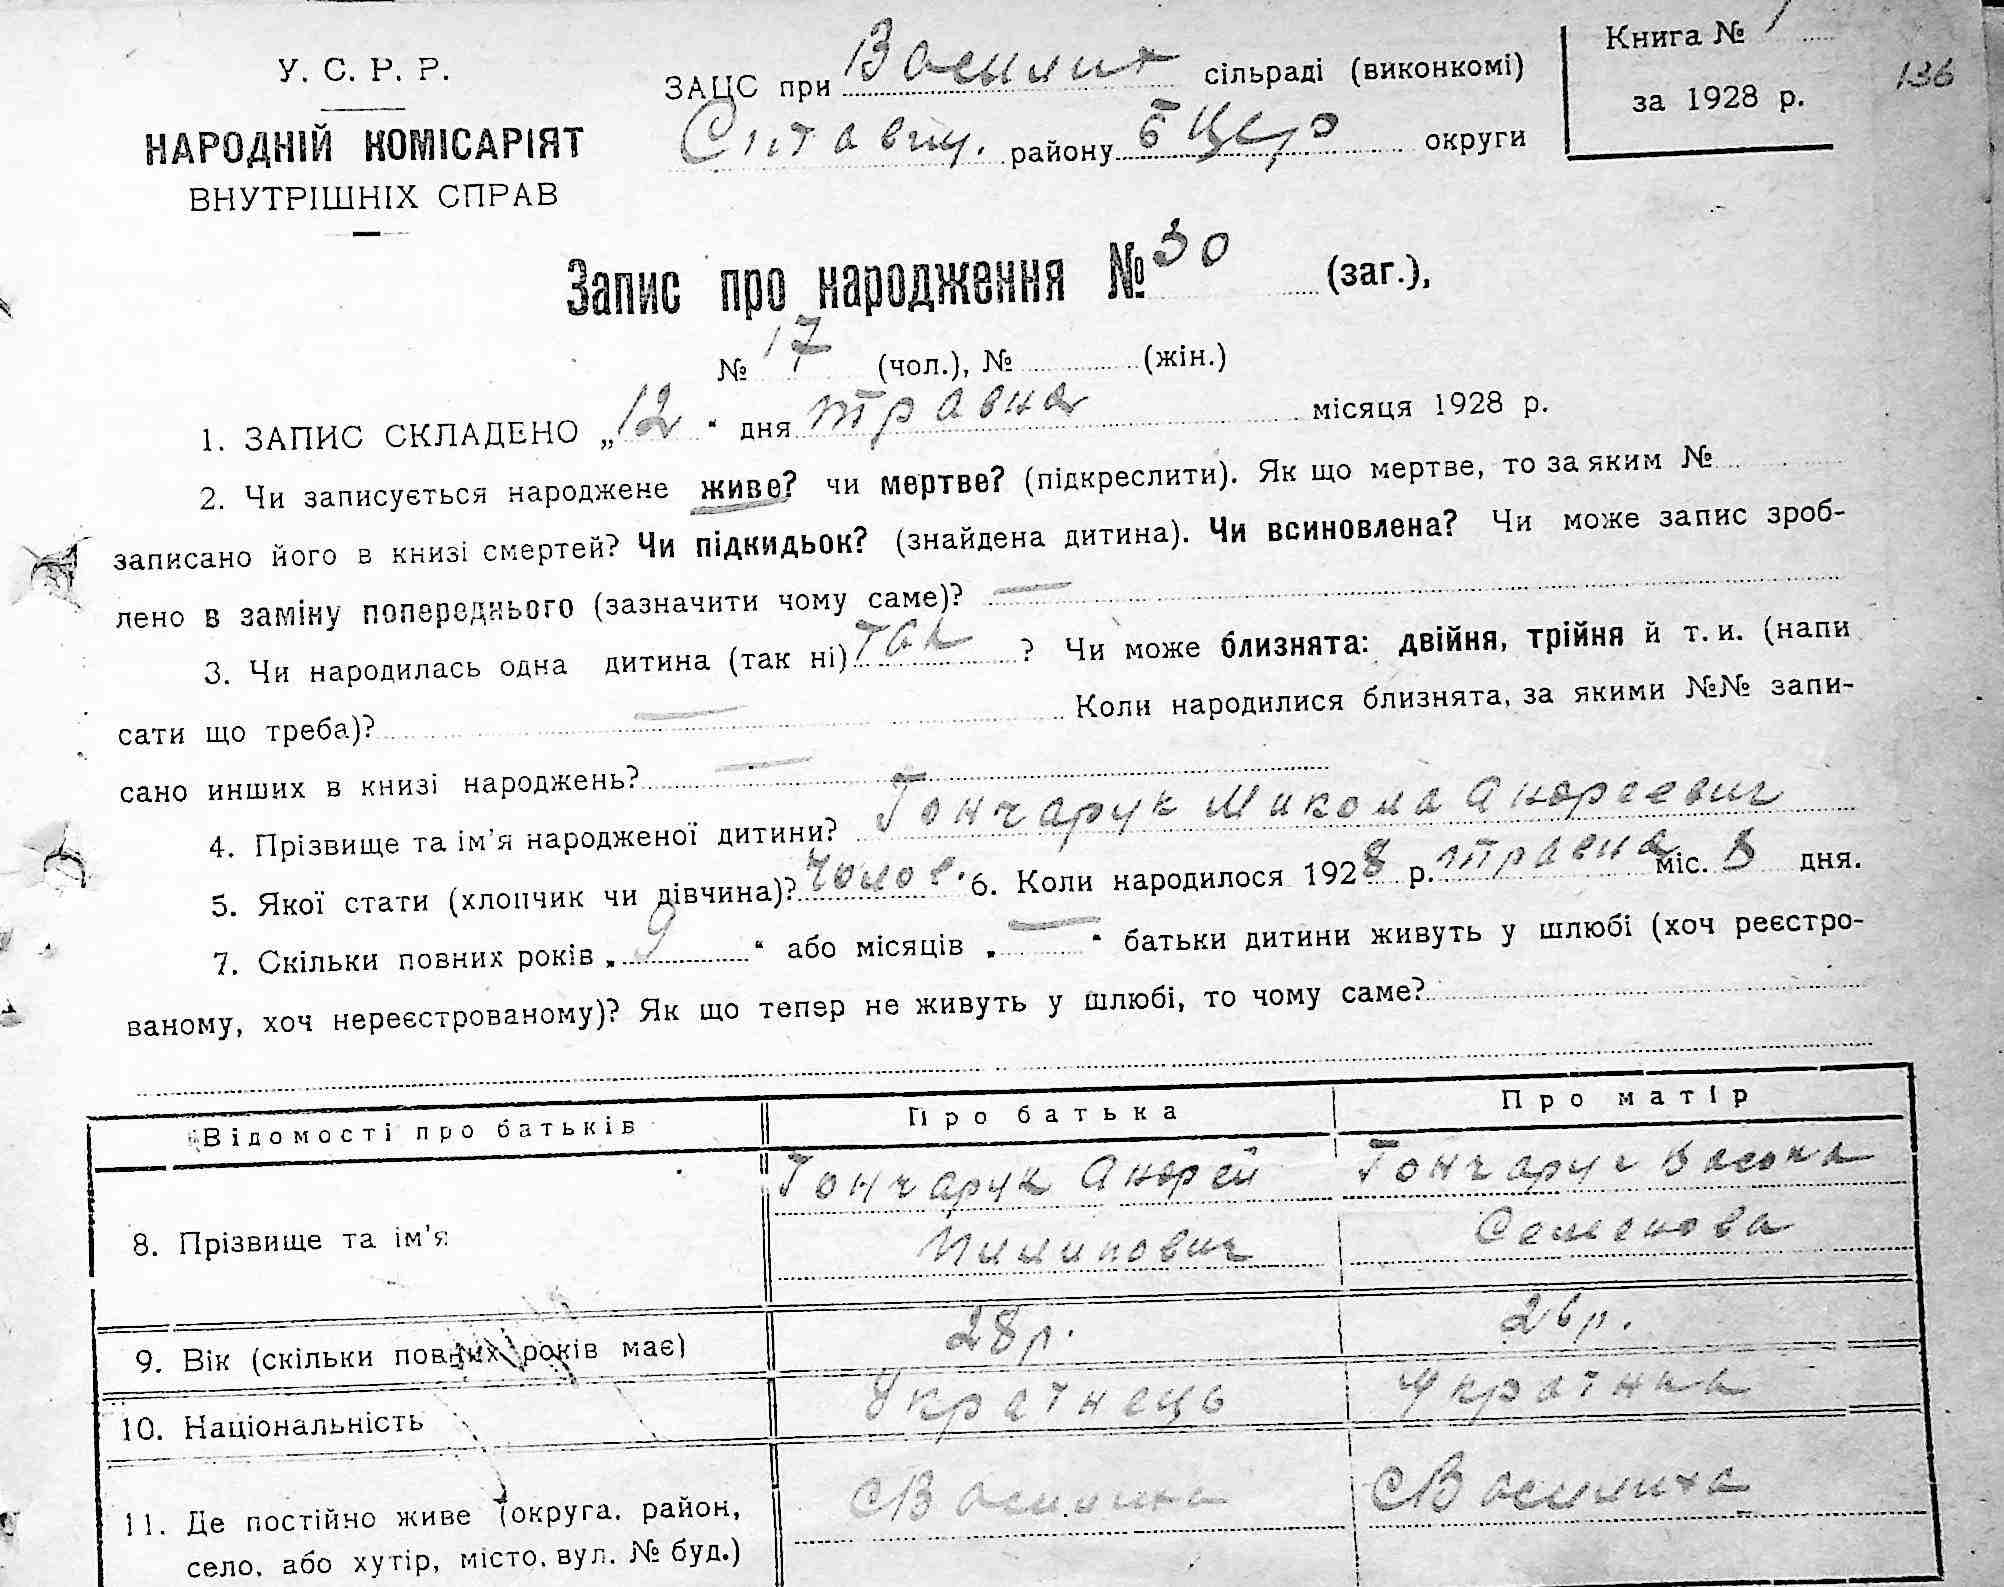 Книга № 1
136
У. С. Р. Р.
ЗАЦС при Василих сільраді (виконкомі)
за 1928 р.
НАРОДНІЙ КОМІСАРІЯТ
Ставищ. району Б Церк округи
ВНУТРІШНІХ СПРАВ
Запис про народження № 30 (заг.),
№ 17 (чол.), № (жін.)
1. ЗАПИС СКЛАДЕНО „12“ дня травня місяця 1928 р.
2. Чи записується народжене живе? чи мертве? (підкреслити). Як що мертве, то за яким №
записано його в книзі смертей? Чи підкидьок? (знайдена дитина). Чи всиновлена? Чи може запис зроб-
лено в заміну попереднього (зазначити чому саме)? —
3. Чи народилась одна дитина (так ні) так ? Чи може близнята: двійня, трійня й т. и. (напи
сати що треба)? — Коли народилися близнята, за якими №№ запи-
сано инших в книзі народжень? —
4. Прізвище та ім'я народженої дитини? Гончарук Микола Андреевич
5. Якої стати (хлопчик чи дівчина)? Чолов. 6. Коли народилося 1928 р. травня міс. 8 дня.
7. Скільки повних років „ 9 “ або місяців „ — “ батьки дитини живуть у шлюбі (хоч реєстро-
ваному, хоч нереєстрованому)? Як що тепер не живуть у шлюбі, то чому саме?
Відомості про батьків Про батька Про матір
8. Прізвище та ім'я Гончарук Андрей Гончарук
Пилипович Семенова
9. Вік (скільки повних років має) 28 р. 26 р.
10. Національність Українець Українка
11. Де постійно живе (округа, район, с Василиха с Василиха
село, або хутір, місто, вул. № буд.)